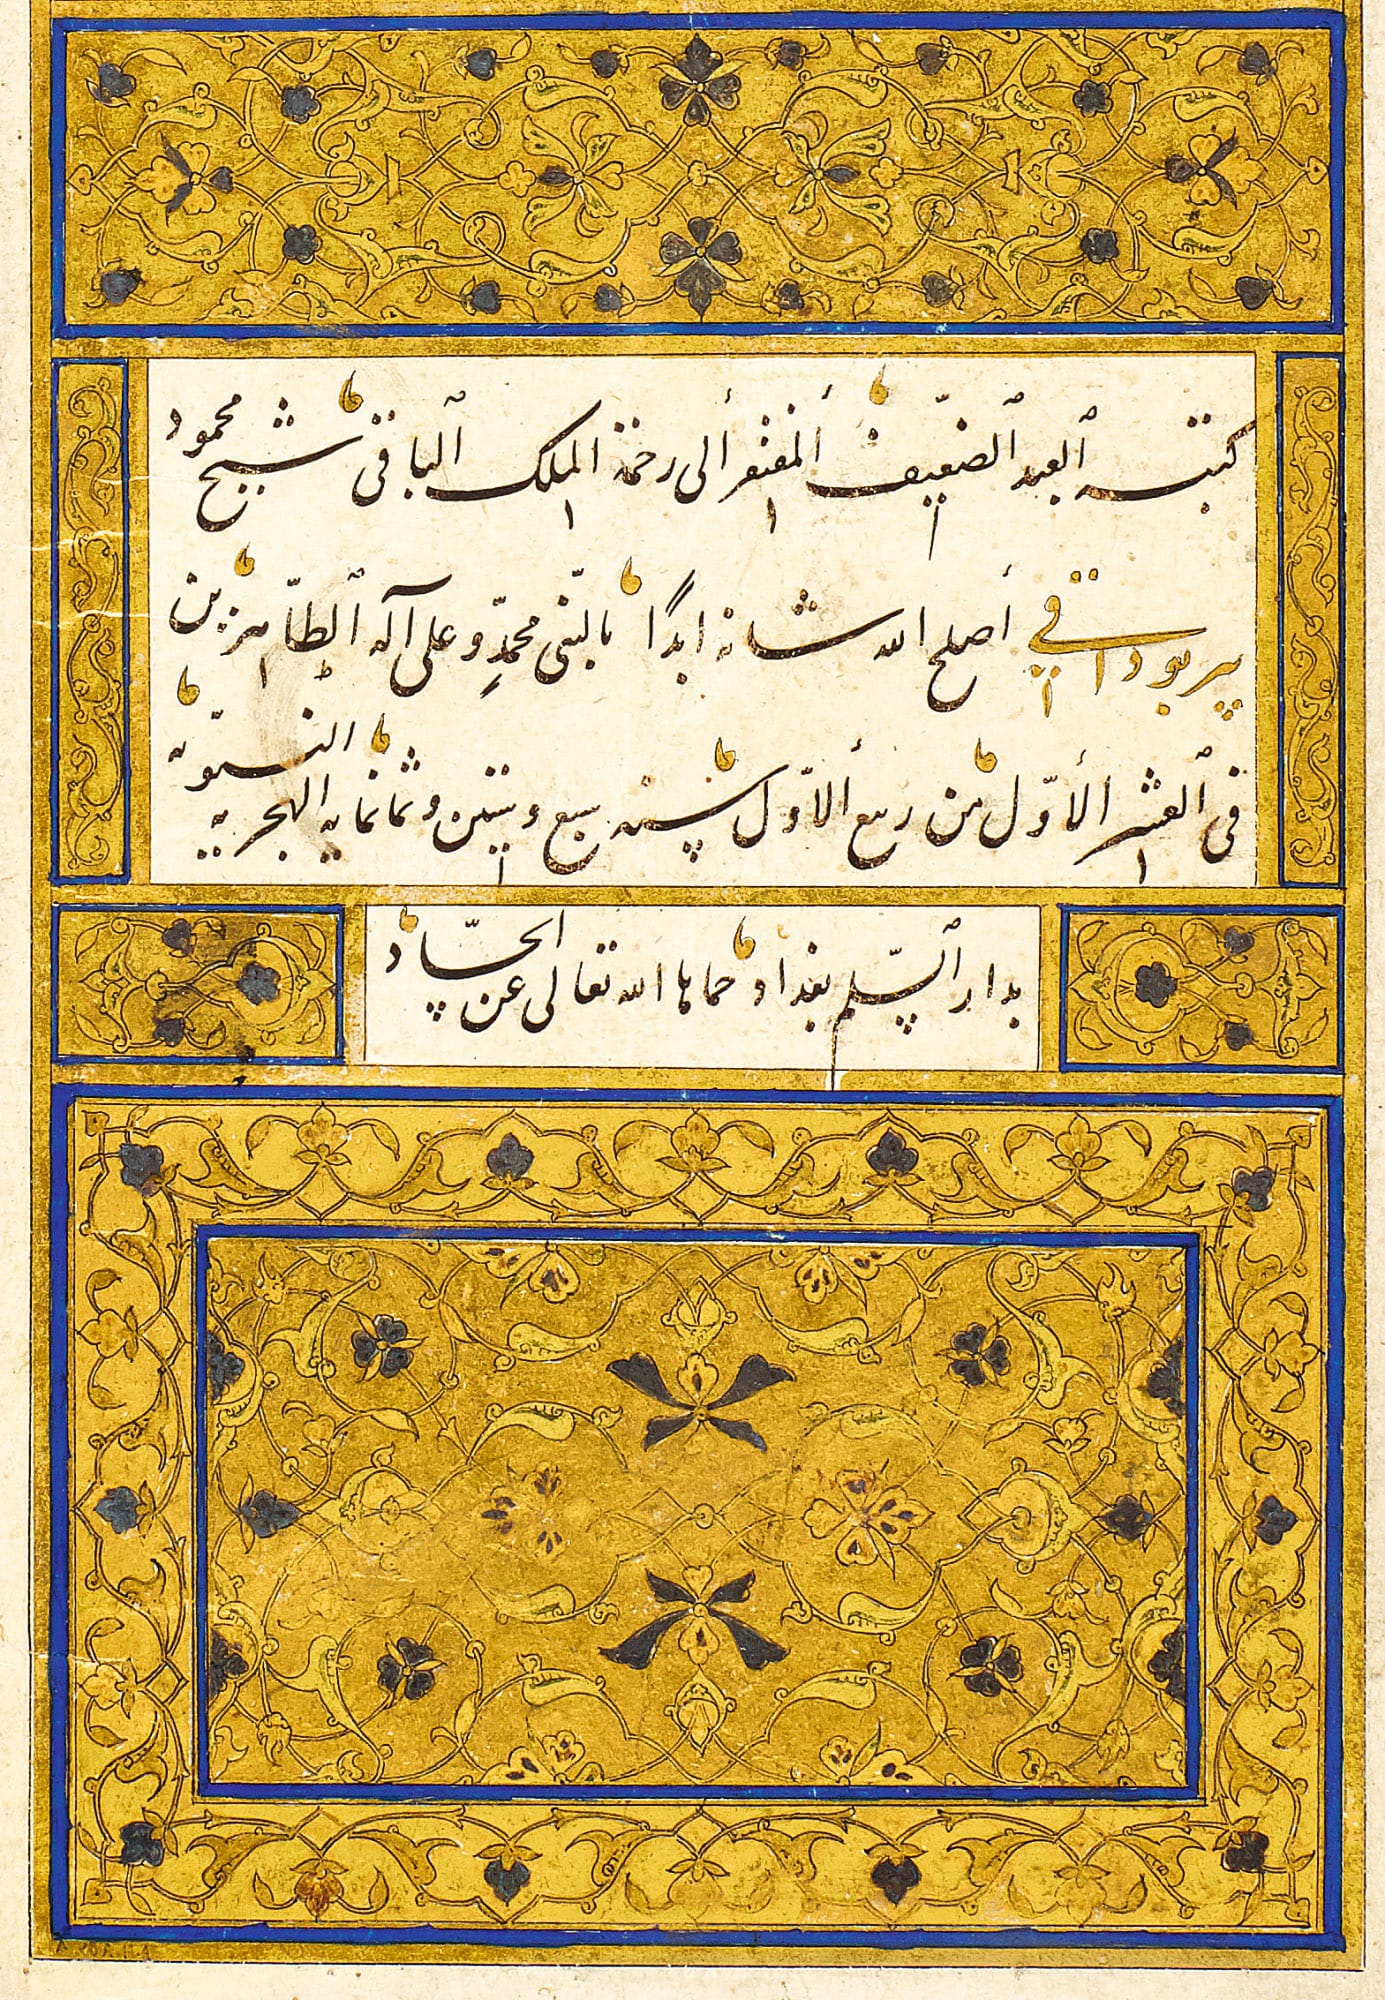 كتبه العبد الضعيف المفتقر الى رحمة الملك الباقى شيخ محمود
پیر بوداقى اصلح الله شانه ابدا بالنبى محمد وعلى آله الطاهرين
فى العشر الأول من ربيع الاول سنه سبع وستين وثمانمايه الهجريه النبويه
بدار السلم بغداد حماها الله تعالى عن الحساد